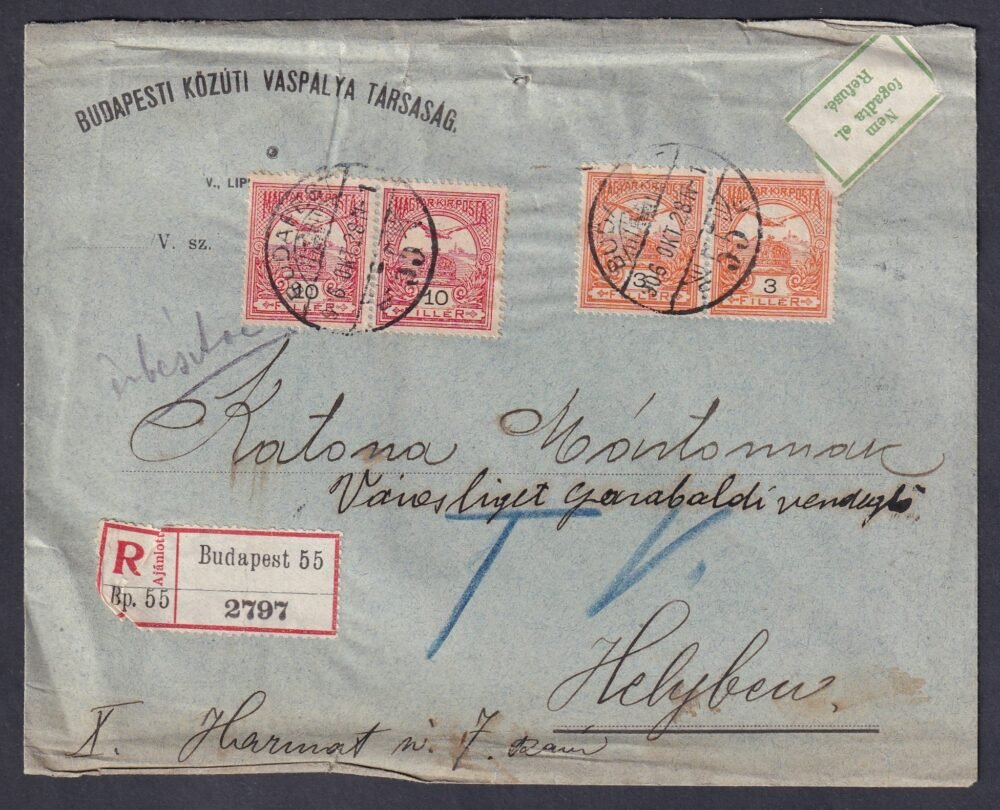 BUDAPESTI KÖZÚTI VASPÁLYA TÁRSASÁG.
Nem
fogadta el.
Refusé.
V., LIP
/V. sz.
MAGYAR KIR. POSTA
10
FILLÉR
MAGYAR KIR. POSTA
10
FILLÉR
MAGYAR KIR. POSTA
3
FILLÉR
MAGYAR KIR. POSTA
3
FILLÉR
BUDAPEST
906 OKT. 28
55
BUDAPEST
906 OKT. 28
55
Katona Mártonnak
Városliget Garabaldi vendeglő
T V.
R Ajánlott
Bp. 55
Budapest 55
2797
Helyben.
X. Harmat u. 7. szám